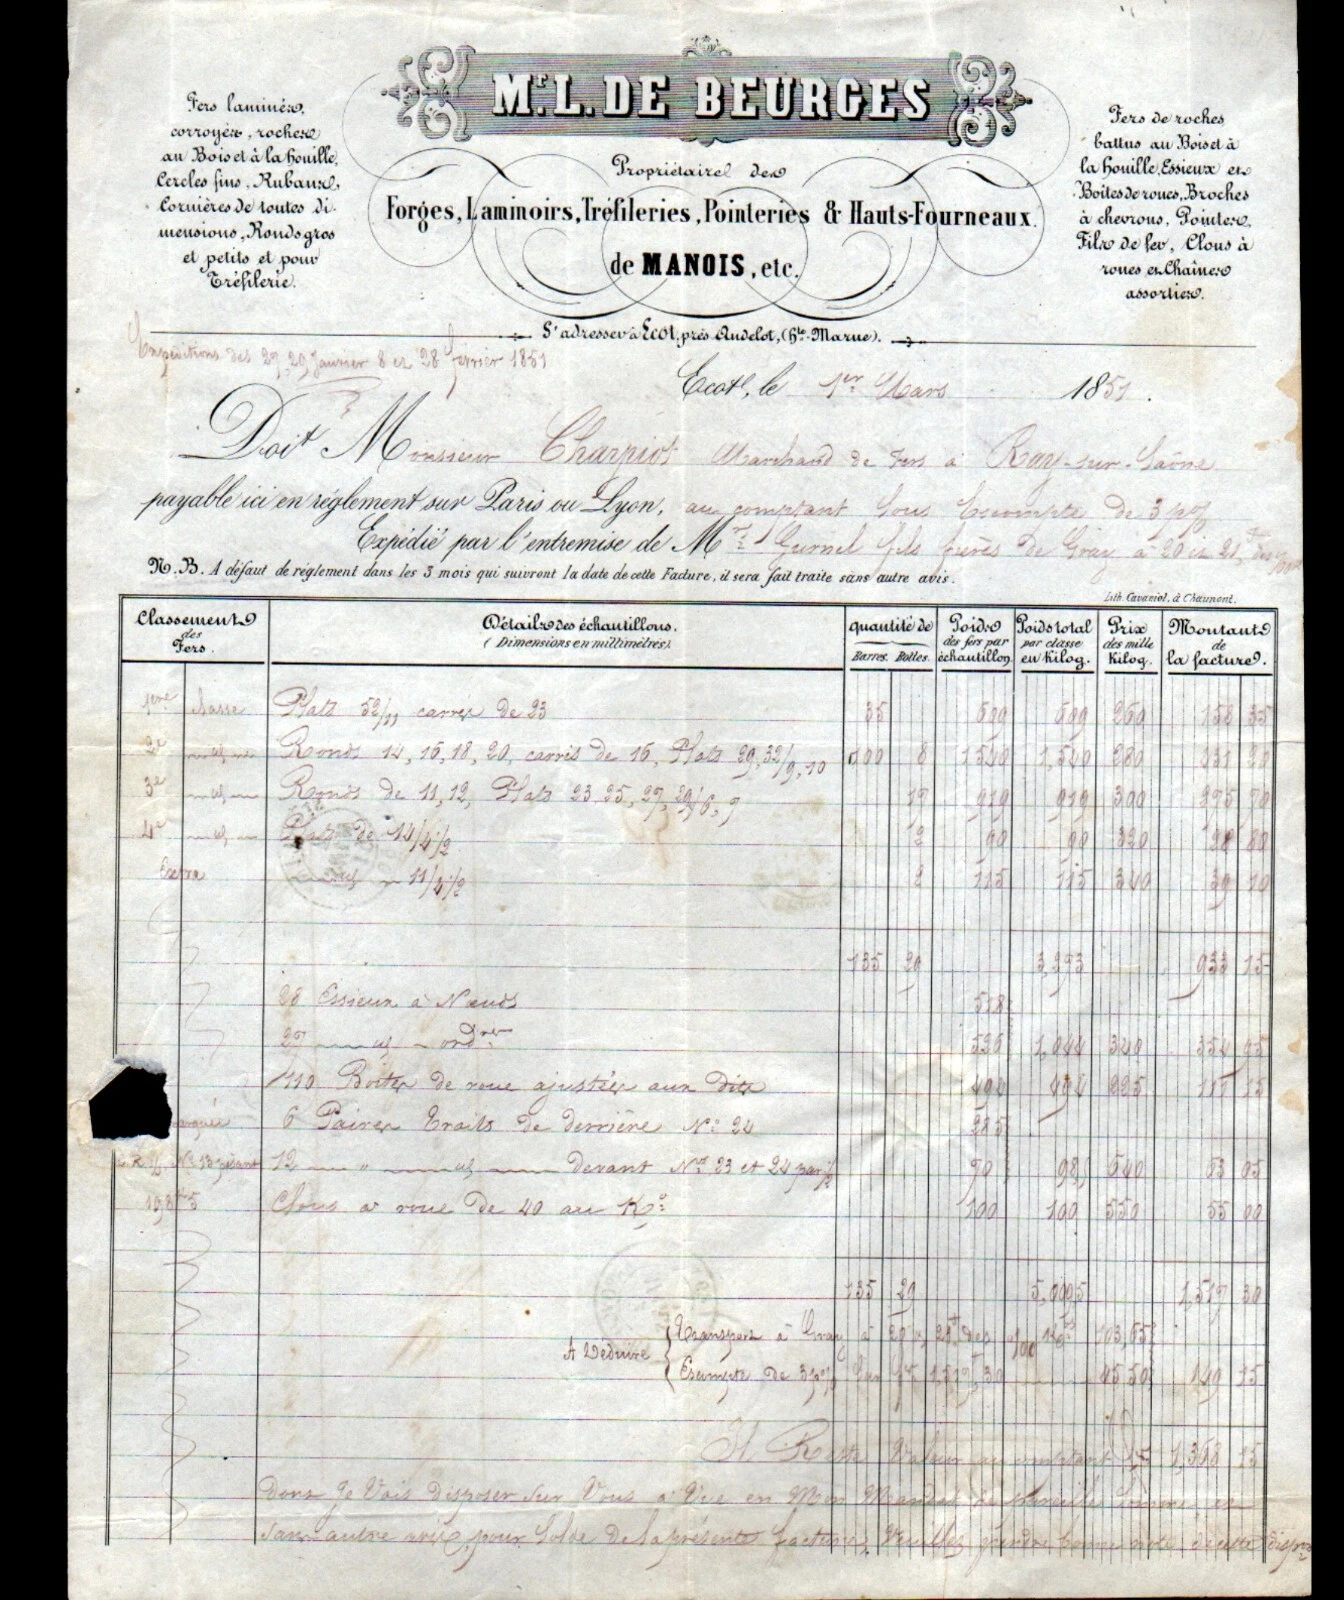 Mr. L. DE BEURGES
Fers laminés,
corroyés, roches
au Bois et à la houille,
Cercles fins, Rubans,
Cornières de toutes di-
mensions, Ronds gros
et petits et pour
Tréfilerie.
Propriétaire des
Forges, Laminoirs, Tréfileries, Pointeries & Hauts-Fourneaux.
de MANOIS, etc.
Fers de roches
battus au Bois et à
la houille, Essieux et
Boîtes de roues, Broches
à chevrons, Pointes,
Fils de fer, Clous à
roues et Chaînes
assorties.
S'adresser à Ecot, près Andelot, (Hte-Marne).
Expéditions des 27, 29, Janvier 8 et 28 février 1851
Ecot, le 1er Mars 1851.
Doit Monsieur Charpiot Marchand de Fers à Ray-sur-Saône
payable ici en réglement sur Paris ou Lyon, au comptant sous Escompte de 3 p%
Expédié par l'entremise de Mr Gurnel fils frères de Gray à 20 et 21 f des
N.B. A défaut de réglement dans les 3 mois qui suivront la date de cette Facture, il sera fait traite sans autre avis.
Lith. Cavaniol, à Chaumont.
Classement des Fers. Détails des échantillons. (Dimensions en millimètres) quantité de Barres. Bottes. Poids des fers par échantillon Poids total par classe en Kilog. Prix des mille Kilog. Montant de la facture.
1ere classe Plats 52/11 carrés de 23 35 609 609 260 158 35
2e Ronds 14, 16, 18, 20, carrés de 16, Plats 29, 32/9, 10 100 8 1540 1,540 280 431 20
3e Ronds de 11, 12, Plats 23, 25, 27, 29/6, 7 17 919 919 300 275 70
4e Plats de 14/4 1/2 2 90 90 320 28 80
Extra 11/4 1/2 2 115 115 340 39 10
135 29 3,273 933 15
28 Essieux à Nœuds 518
27 ordres 526 1,044 340 354 95
110 Boites de roue ajustées aux dits 494 494 225 111 15
6 Paires traits de derrière No 24
12 devant Nos 23 et 24 par 1/2 70 98,5 540 53 05
198 k 5 Clous à roue de 40 au Ko 100 100 550 55 00
135 29 5,009 5 1,517 30
A Déduire
Transport à Gray à 20 et 21 f des 0/00 Kos 103,65
Escompte de 3 p% sur f 1,517,30 45 50 149 15
Il Reste Valeur au comptant f 1,368 15
Dont je Vais Disposer sur Vous à Vue en Mon Mandat de pareille somme et
sans autre avis, pour Solde de la présente facture, Veuillez prendre bonne note de cette dispon